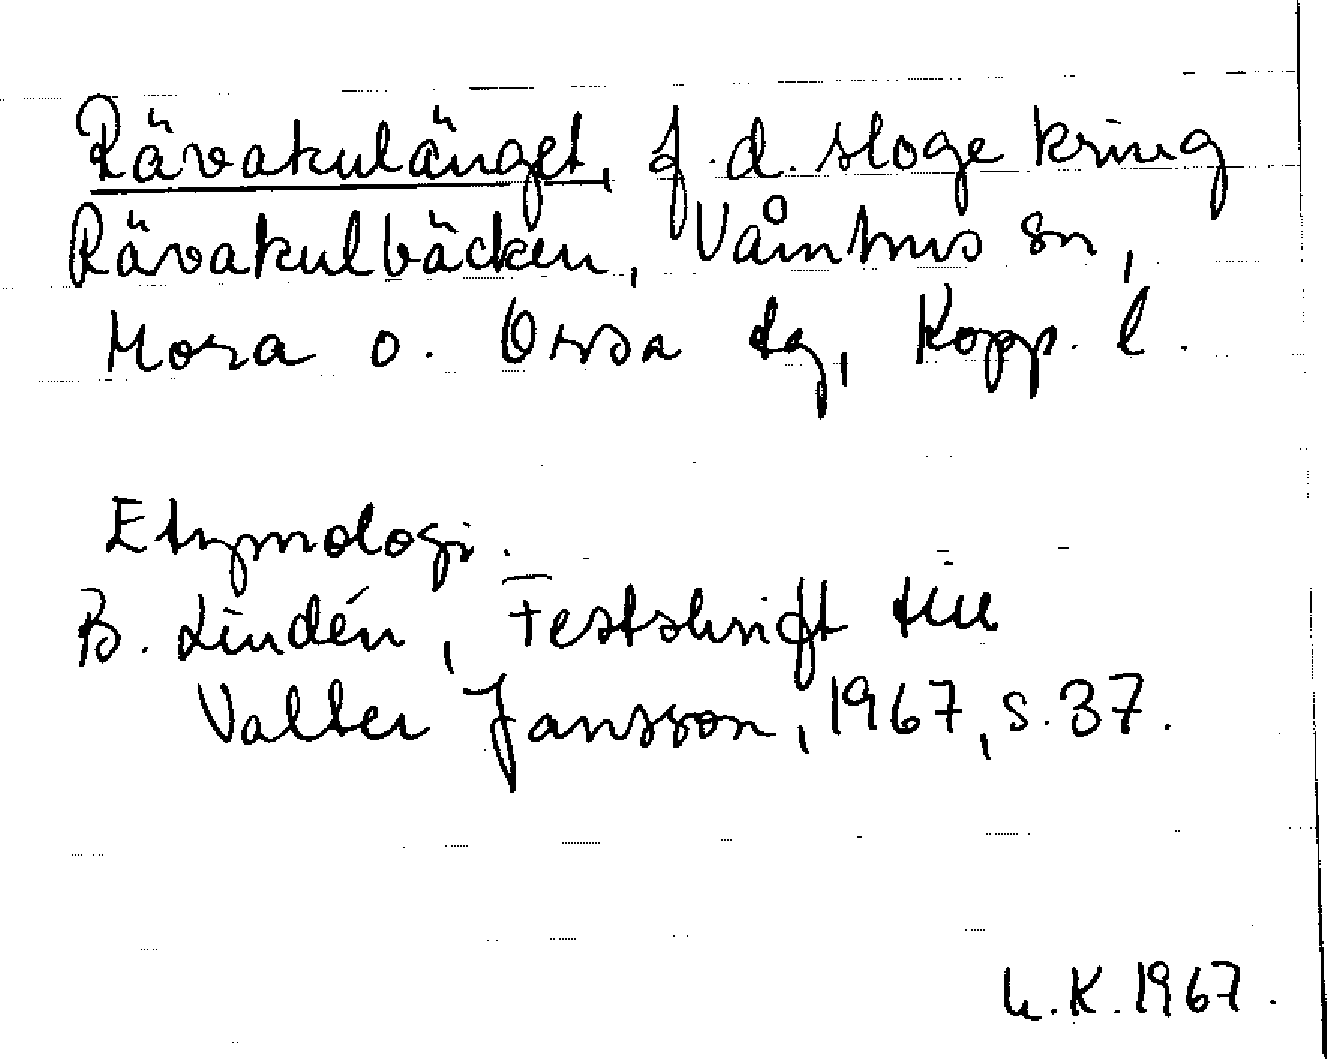 Rävakulänget, f.d. sloge kring
Rävakulbäcken, Våmhus sn,
Mora o. Orsa tg, Kopp. l.
Etymologi.
B. Lindén, Festskrift till
Valter Jansson, 1967, s. 37.
K. 1967.